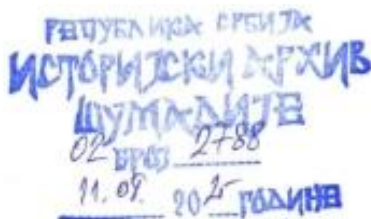 РЕПУБЛИКА СРБИЈА
ИСТОРИЈСКИ АРХИВ
ШУМАДИЈЕ
02 БРОЈ 2788
11.09. 2025 ГОДИНЕ